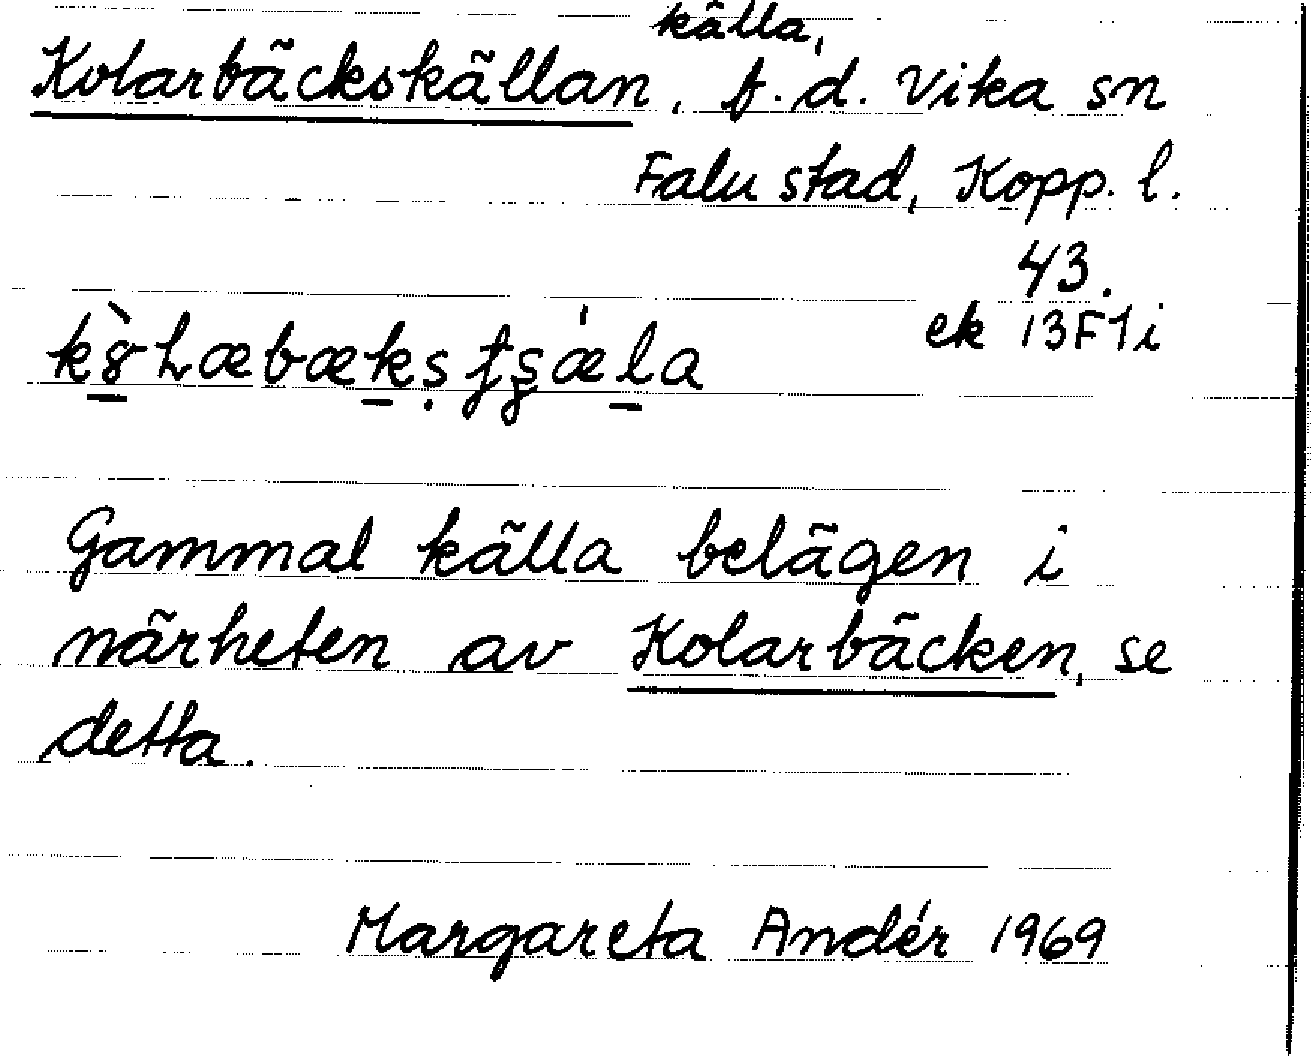 källa,
Kolarbäckskällan, f.d. Vika sn
Falu stad, Kopp. l.
43.
ek 13F1i
Gammal källa belägen i
närheten av Kolarbäcken, se
detta.
Margareta Andér 1969